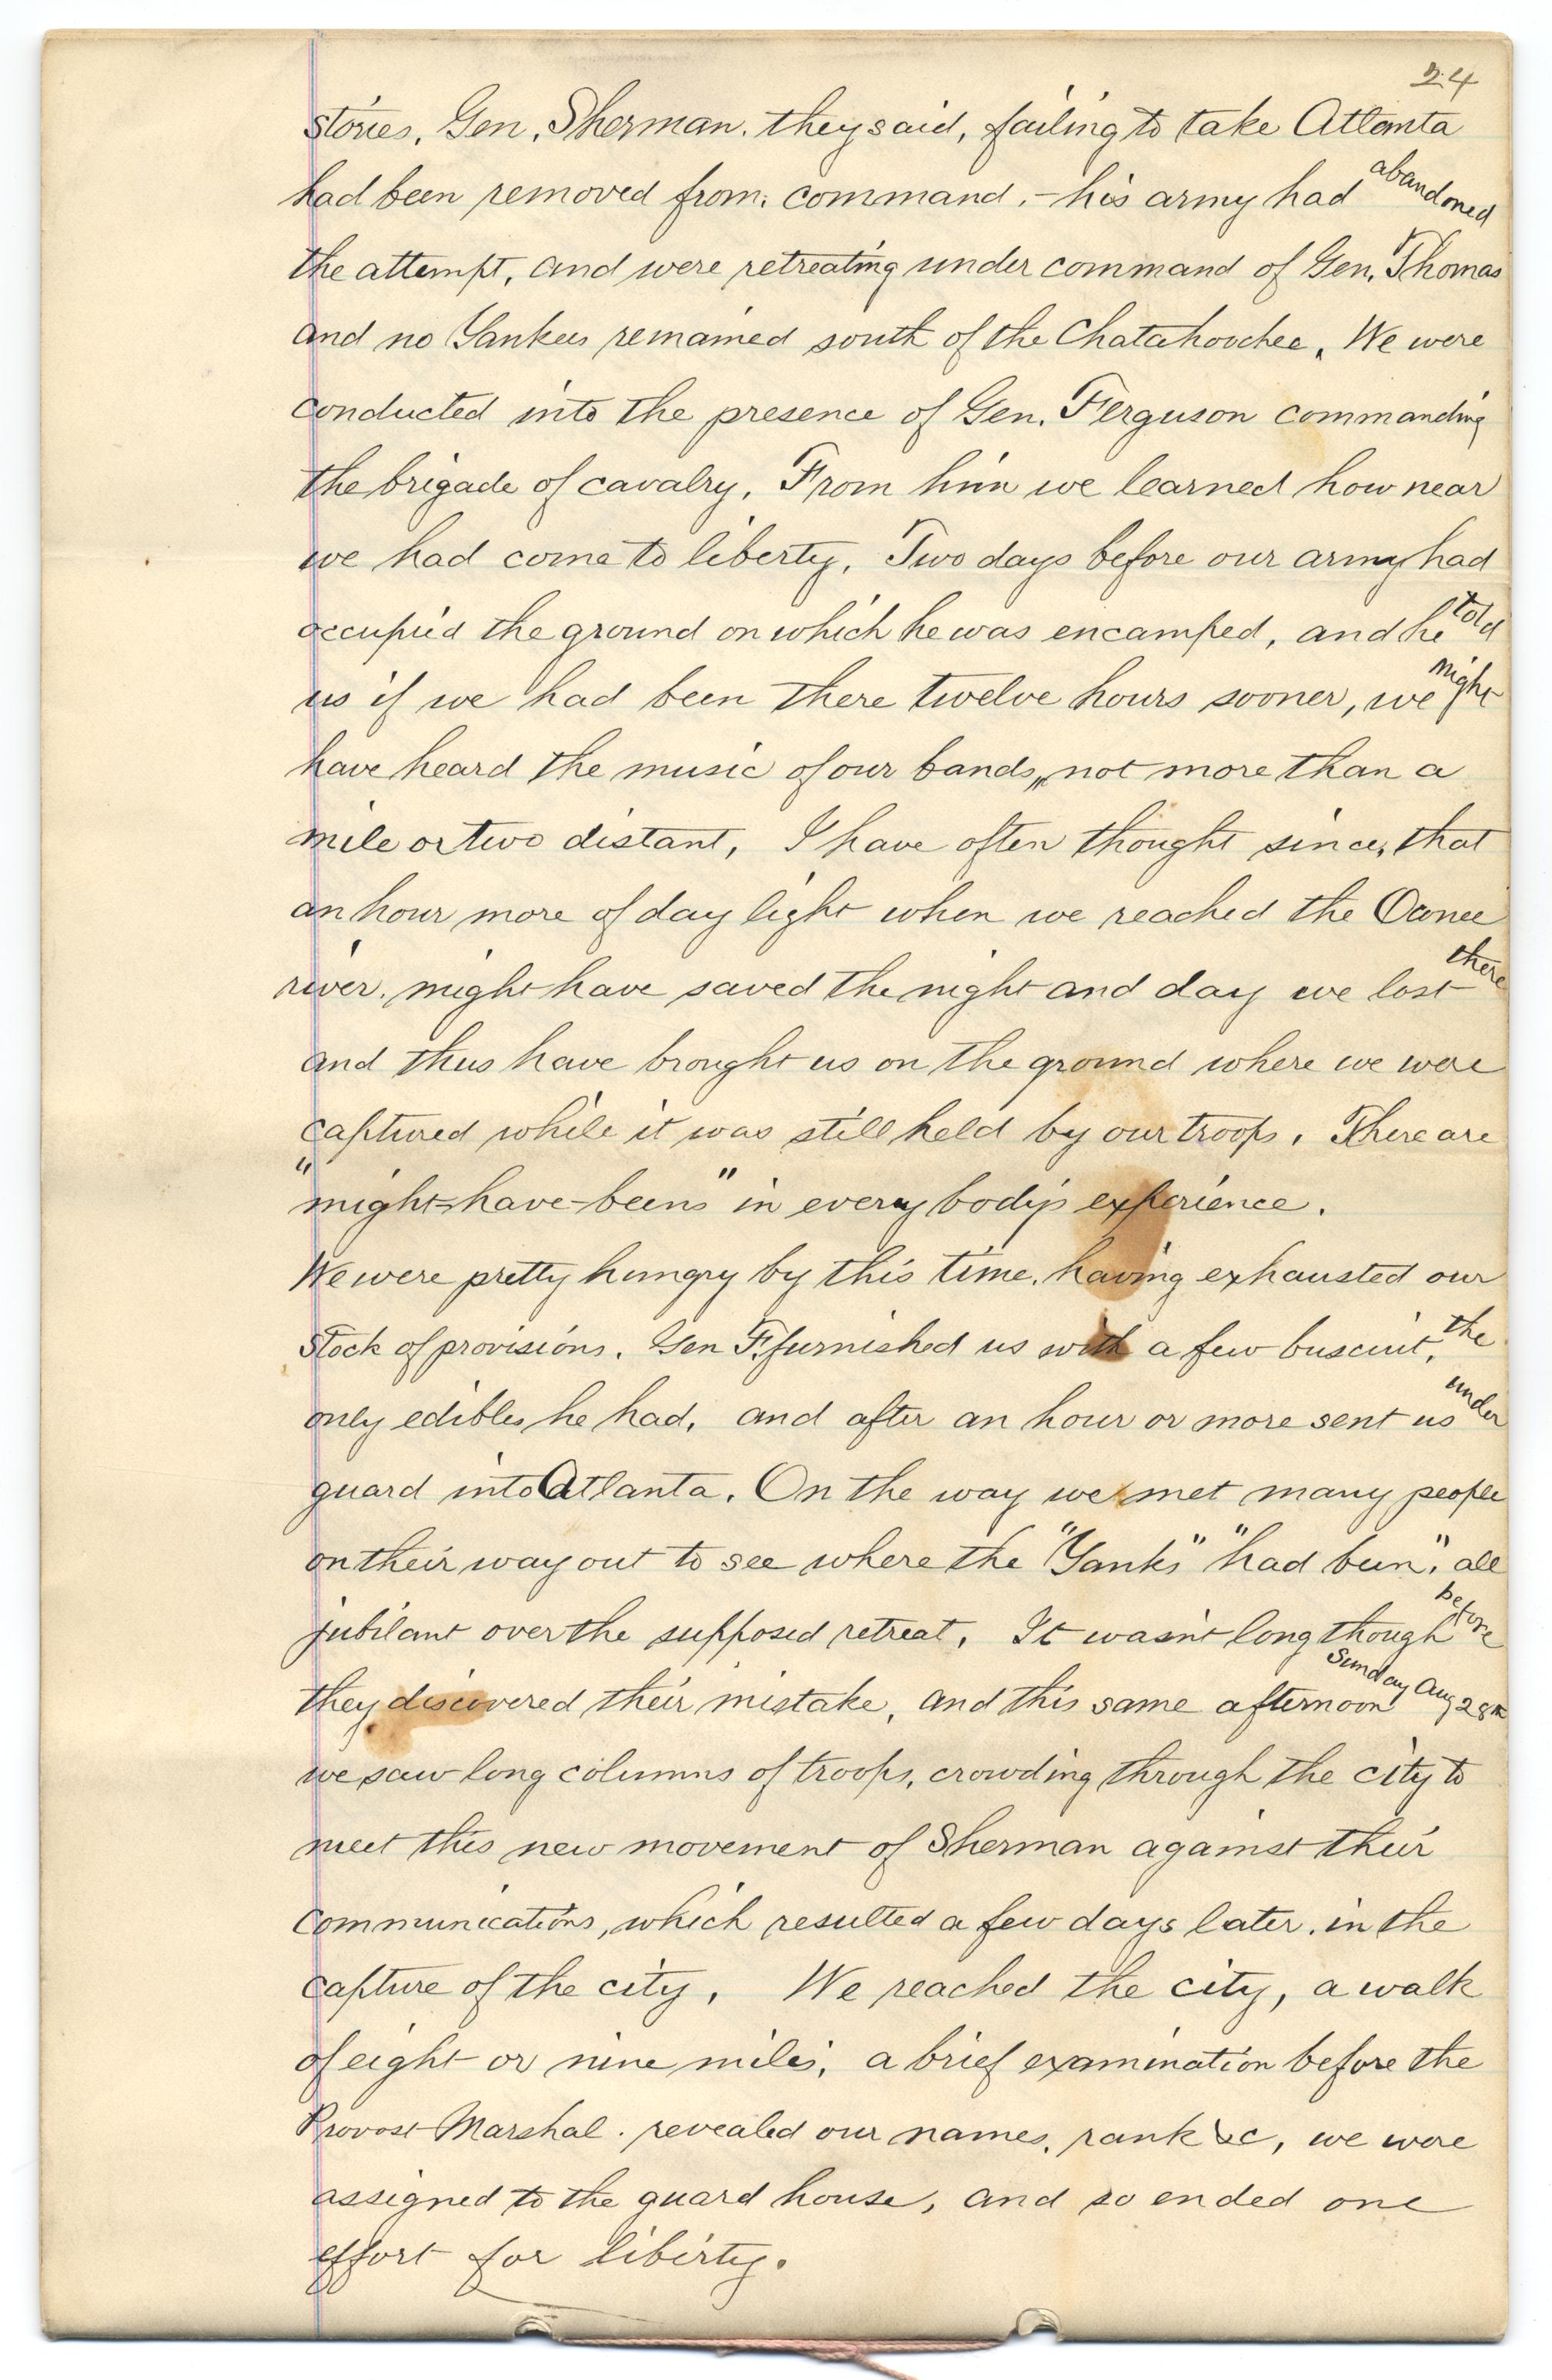 24
stories, Gen, Sherman. they said, failing to take Atlanta
had been removed from. command, - his army had abandoned
the attempt, and were retreating under command of Gen. Thomas
and no Yankees remained south of the Chatahoochee, We were
conducted into the presence of Gen. Ferguson commanding
the brigade of cavalry, From him we learned how near
we had come to liberty, Two days before our army had
occupied the ground on which he was encamped, and he told
us if we had been there twelve hours sooner, we might
have heard the music of our bands, not more than a
mile or two distant, I have often thought since, that
an hour more of day light when we reached the Oconee
river. might have saved the night and day we lost there
and thus have brought us on the ground where we were
captured while it was still held by our troops. There are
"might-have-beens" in every body's experience.
We were pretty hungry by this time, having exhausted our
stock of provisions. Gen F. furnished us with a few buscuit, the
only edibles he had, and after an hour or more sent us under
guard into Atlanta. On the way we met many people
on their way out to see where the "Yanks" "had bun", all
jubilant over the supposed retreat, It wasn't long though before
they discovered their mistake, and this same afternoon Sunday Aug 28th
we saw long columns of troops, crowding through the city to
meet this new movement of Sherman against their
communications, which resulted a few days later. in the
capture of the city, We reached the city, a walk
of eight or nine miles, a brief examination before the
Provost Marshal. revealed our names, rank &c, we were
assigned to the guard house, and so ended one
effort for liberty.